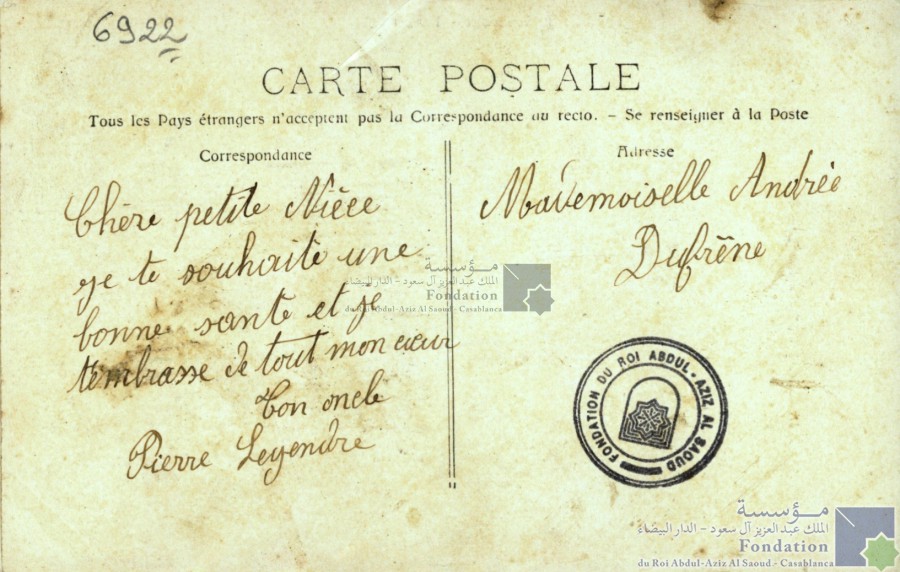 6922
CARTE POSTALE
Tous les Pays étrangers n'acceptent pas la Correspondance au recto. - Se renseigner à la Poste
Correspondance
Chère petite Nièce
je te souhaite une
bonne sante et je
t'embrasse de tout mon cœur
Ton oncle
Pierre Legendre
Adresse
Mademoiselle Andrée
Dufrêne
مؤسسة
الملك عبد العزيز آل سعود - الدار البيضاء
Fondation
du Roi Abdul-Aziz Al Saoud - Casablanca
FONDATION DU ROI ABDUL-AZIZ AL SAOUD
مؤسسة
الملك عبد العزيز آل سعود - الدار البيضاء
Fondation
du Roi Abdul-Aziz Al Saoud - Casablanca